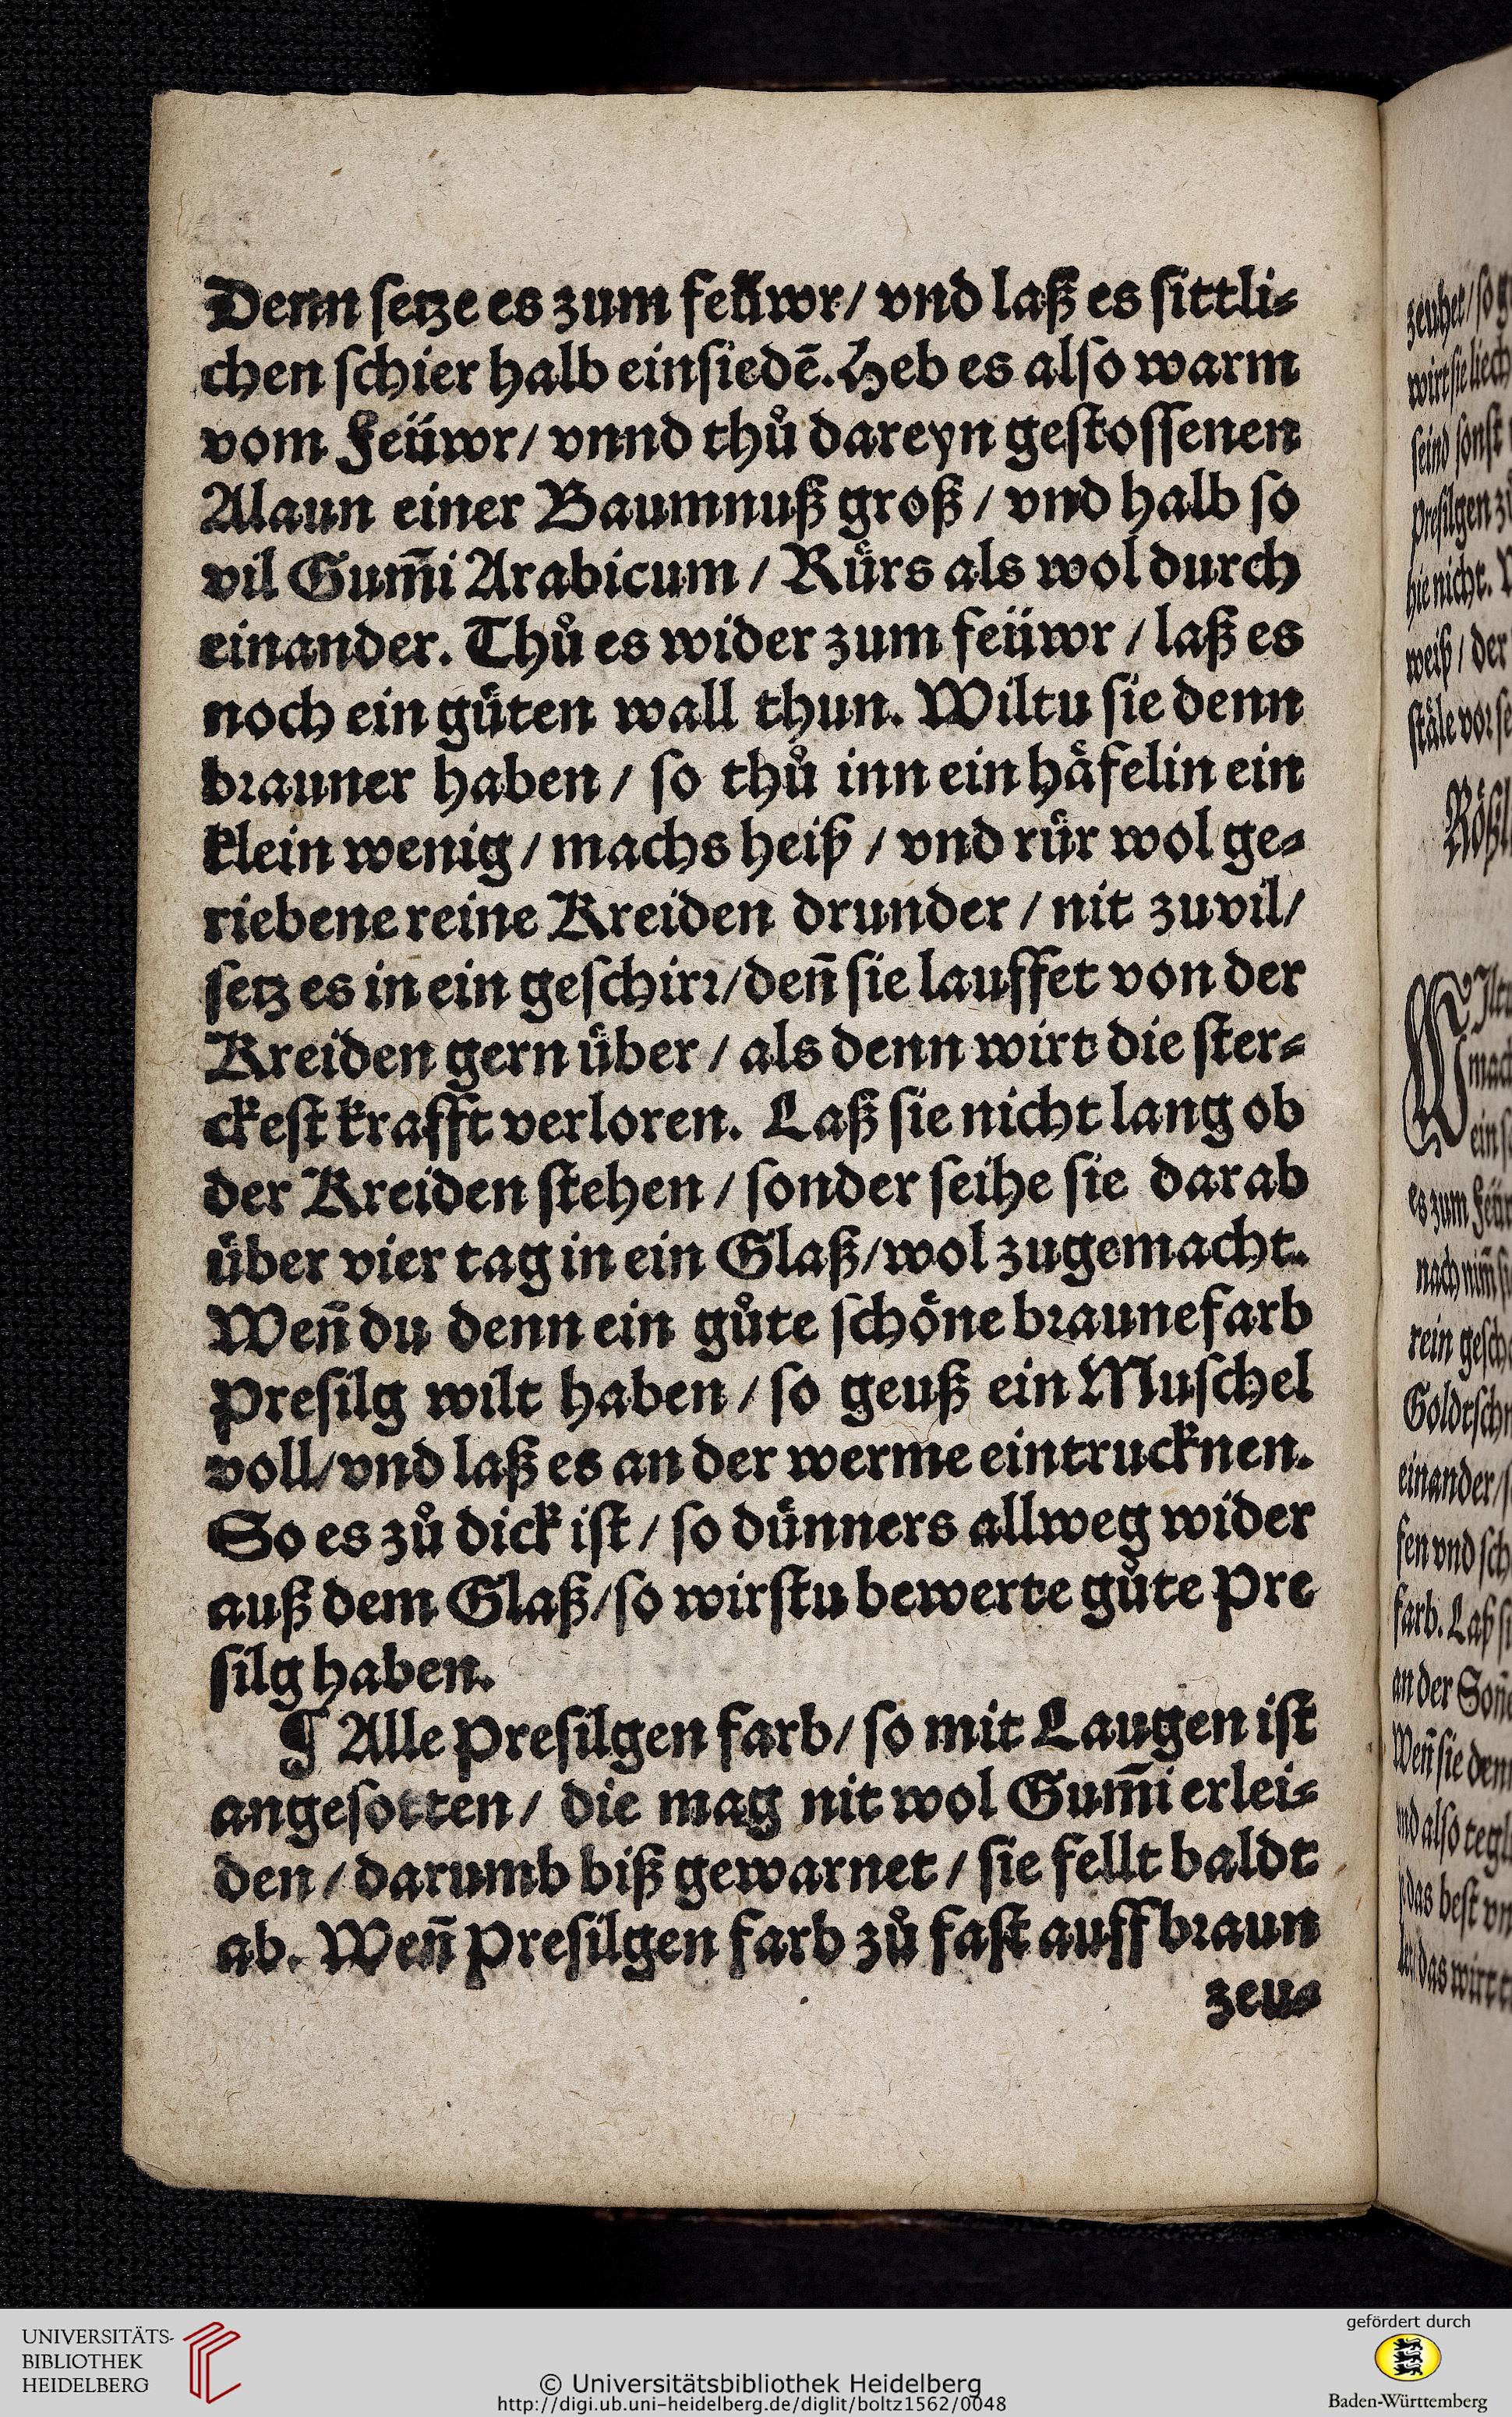 Denn setze es zum feüwr/ vnd laß es sittli⸗
chen schier halb einsiedē. Heb es also warm
vom Feüwr/ vnnd thů dareyn gestossenen
Alaun einer Baumnuß groß / vnd halb so
vil Gum̄i Arabicum / Ruͤrs als wol durch
einander. Thů es wider zum feüwr / laß es
noch ein guͤten wall thun. Wiltu sie denn
brauner haben / so thů inn ein haͤfelin ein
klein wenig / machs heiß / vnd ruͤr wol ge⸗
riebene reine Kreiden drunder / nit zuvil/
setz es in ein geschirr/ den̄ sie lauffet von der
Kreiden gern uͤber / als denn wirt die ster⸗
ckest krafft verloren. Laß sie nicht lang ob
der Kreiden stehen / sonder seihe sie darab
uͤber vier tag in ein Glaß/ wol zugemacht.
Wen̄ du denn ein gůte schoͤne braune farb
Presilg wilt haben / so geuß ein Muschel
voll/ vnd laß es an der werme eintrucknen.
So es zů dick ist / so duͤnners allweg wider
auß dem Glaß/ so wirstu bewerte gůte Pre
silg haben.
¶ Alle Presilgen farb/ so mit Laugen ist
angesotten / die mag nit wol Gum̄i erlei⸗
den / darumb biß gewarnet / sie fellt baldt
ab. Wen̄ Presilgen farb zů fast auff braun
zeu⸗
zeuhet / so g
wirt sie liech
seind sonst
Presilgen zů
hie nicht.
weiß / der
staͤle vor se
Roͤßl
WIltu
mach
ein s
es zum Feür
nach nim̄
rein gesch
Goldtsch
einander/
fen vnd sch
farb. Laß si
an der Son̄
Wen̄ sie denn
vnd also tegl
das best vn
das wirt
UNIVERSITÄTS-
BIBLIOTHEK
HEIDELBERG
© Universitätsbibliothek Heidelberg
http://digi.ub.uni-heidelberg.de/diglit/boltz1562/0048
gefördert durch
Baden-Württemberg